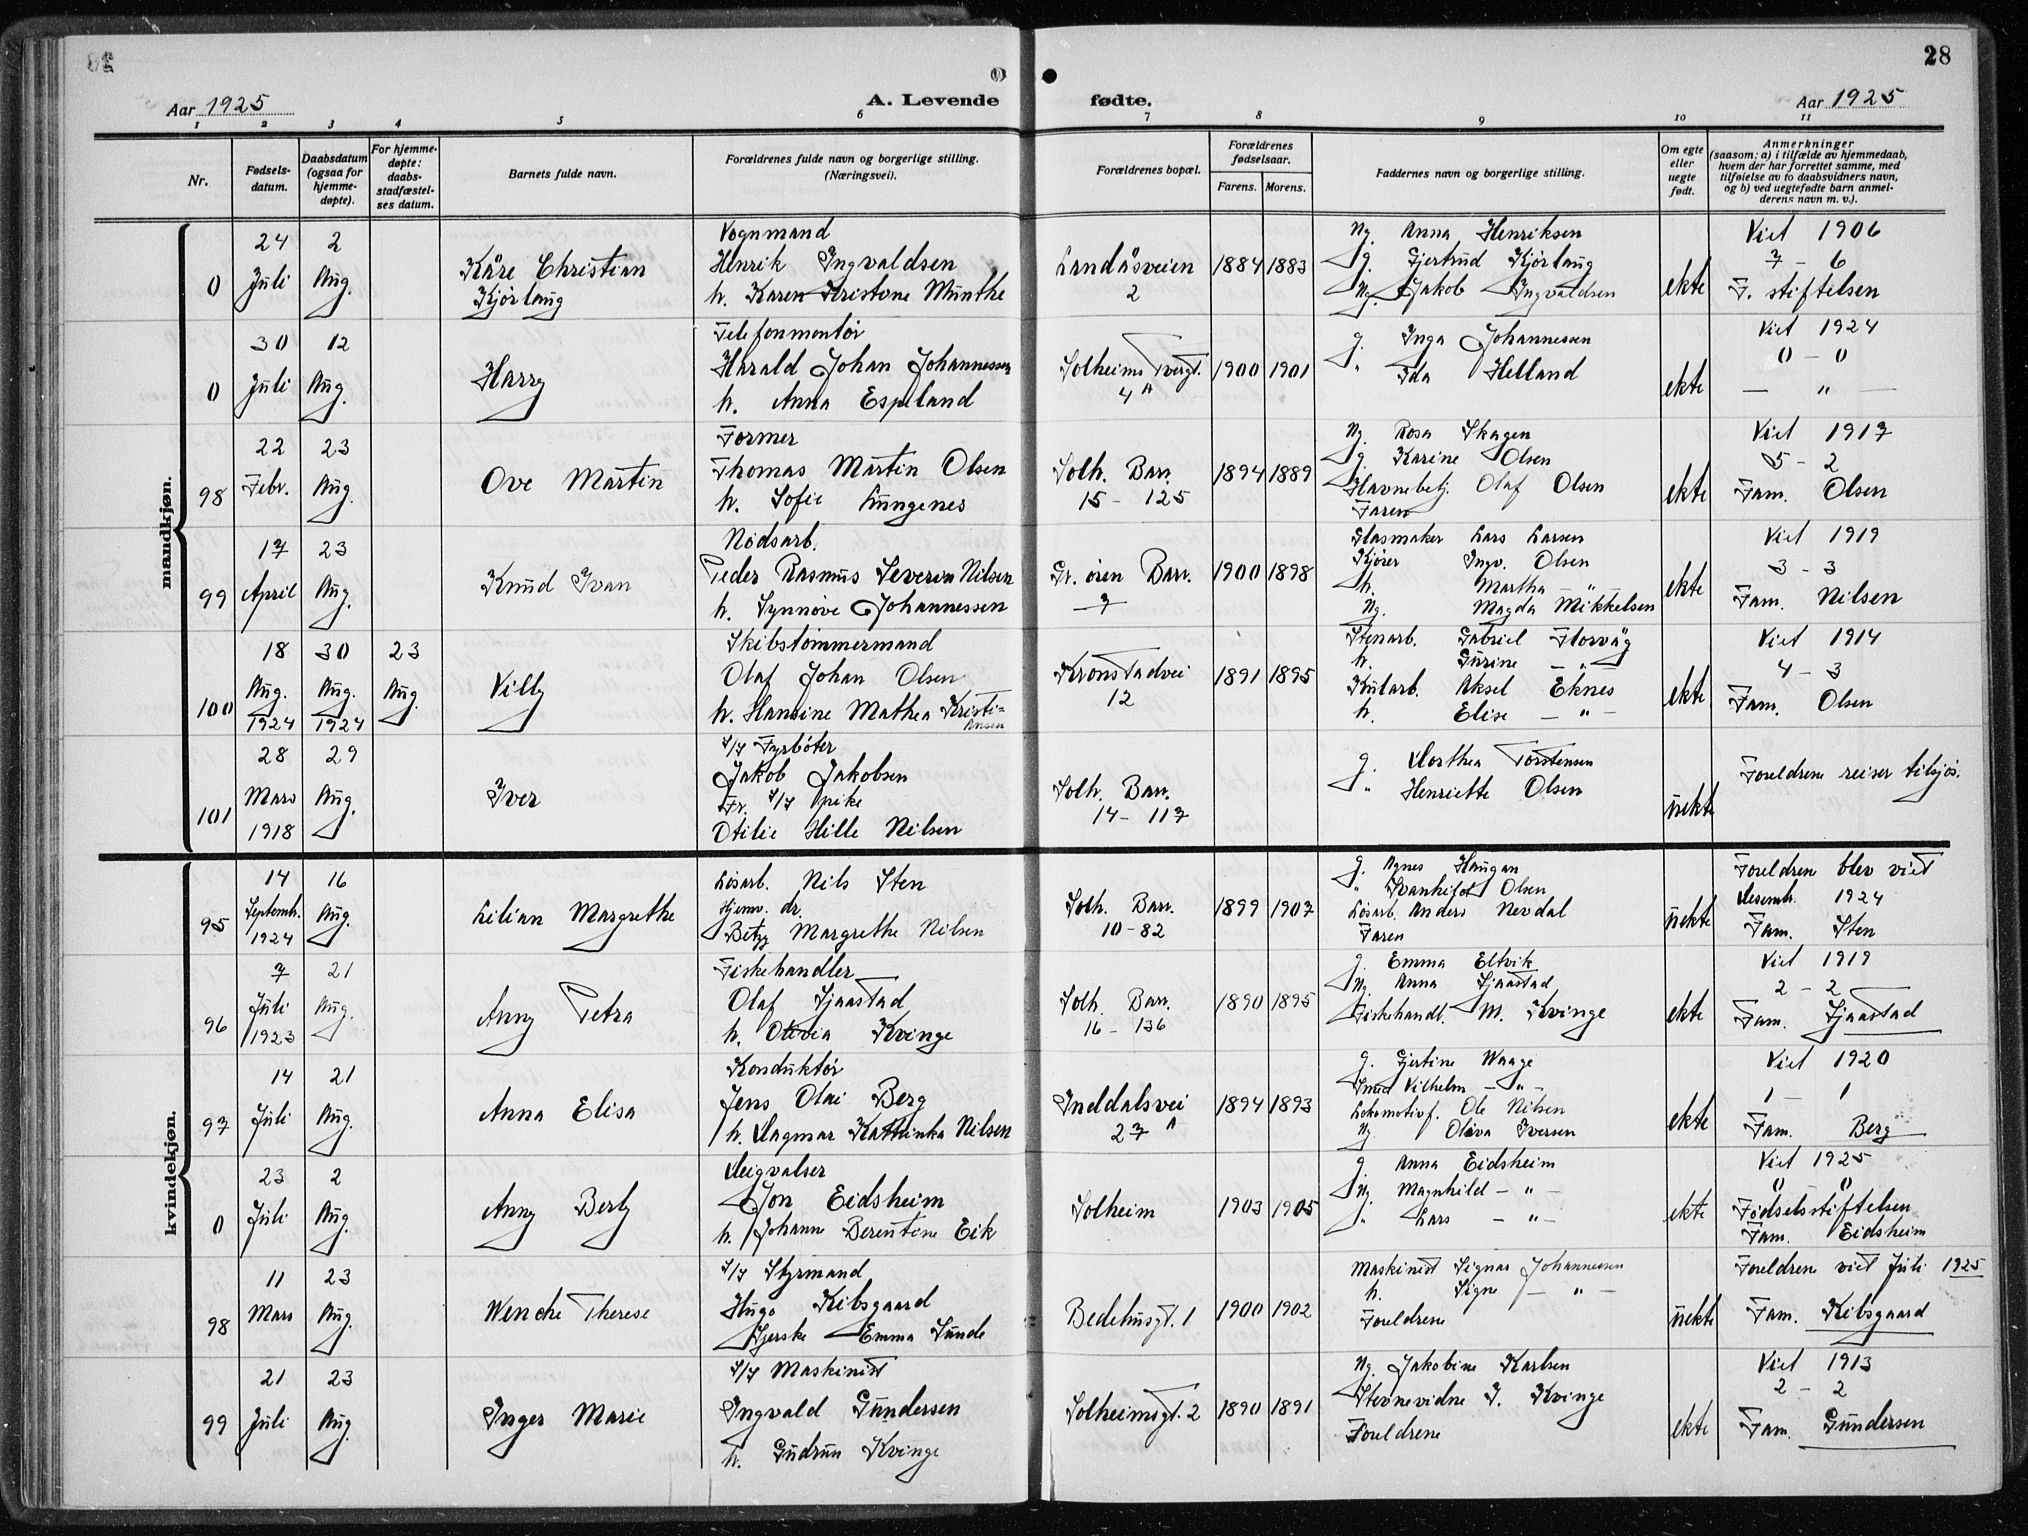 28
Aar 1925
A. Levende fødte.
Aar 1925
1 2 3 4 5 6 7 8 9 10 11
Nr.
Fødsels-
datum.
Daabsdatum
(ogsaa for
hjemme-
døpte).
For hjemme-
døpte:
daabs-
stadfæstel-
ses datum.
Barnets fulde navn.
Forældrenes fulde navn og borgerlige stilling.
(Næringsvei).
Forældrenes bopæl.
Forældrenes
fødselsaar.
Farens. Morens.
Faddernes navn og borgerlige stilling.
Om egte
eller
uegte
født.
Anmerkninger
(saasom: a) i tilfælde av hjemmedaab,
hvem der har forrettet samme, med
tilføielse av to daabsvidners navn,
og b) ved uegtefødte barn anmel-
derens navn m. v.).
mandkjøn.
0
24
Juli
2
Aug.
Kåre Christian
Kjørlaug
Vognmand
Henrik Ingvaldsen
h. Karen Kristine Munthe
Landåsveien
2
1884 1883
Ug. Anna Henriksen
g. Gjertrud Kjørlaug
Ug. Jakob Ingvaldsen
ekte
Viet 1906
7 - 6
F. stiftelsen
0
30
Juli
12
Aug.
Harry
Telefonmontør
Harald Johan Johannessen
h. Anna Espeland
Solheims Tvergt.
4 A
1900 1901
g. Inga Johannessen
" Ida Helland
ekte
Viet 1924
0 - 0
— " —
98
22
Febr.
23
Aug.
Ove Martin
Former
Thomas Martin Olsen
h. Sofie Lungenes
Solh. Barr.
15 - 125
1894 1889
Ug. Rosa Skagen
g. Karine Olsen
Havnebetj. Olaf Olsen
Faren
ekte
Viet 1917
5 - 2
Fam. Olsen
99
17
April
23
Aug.
Knud Ivan
Nødsarb.
Peder Rasmus Severin Nilsen
h. Synnøve Johannessen
Gr. ören Barr.
7
1900 1898
Glasmaker Lars Larsen
Kjører Ingv. Olsen
h. Martha — " —
Ug. Magda Mikkelsen
ekte
Viet 1919
3 - 3
Fam. Nilsen
100
18
Aug.
1924
30
Aug.
1924
23
Aug.
Villy
Skibstømmermand
Olaf Johan Olsen
h. Hansine Mathea Kristi-
ansen
Kronstadvei
12
1891 1895
Stenarb. Gabriel Florvåg
h. Gurine — " —
Kularb. Aksel Eknes
h. Elise — " —
ekte
Viet 1914
4 - 3
Fam. Olsen
101
28
Mars
1918
29
Aug.
Iver
S/S Fyrbøter
Jakob Jakobsen
Fr. S/S pike
Otilie Hille Nilsen
Solh. Barr.
14 - 117
g. Dorthea Torstensen
" Henriette Olsen
uekte
Foreldrene reiser tilsjøs.
kvindekjøn.
95
14
Septemb.
1924
16
Aug.
Lilian Margrethe
Løsarb. Nils Sten
Hjemv. dr.
Betzy Margrethe Nilsen
Solh. Barr.
10 - 82
1899 1907
g. Agnes Haugan
" Svanhild Olsen
Løsarb. Anders Nevdal
Faren
uekte
Foreldrene blev viet
Desemb. 1924
Fam. Sten
96
7
Juli
1923
21
Aug.
Anny Petra
Fiskehandler
Olaf Sjaastad
h. Olivia Kvinge
Solh. Barr.
16 - 136
1890 1895
g. Emma Eltvik
Ug. Anna Sjaastad
Fiskehandl. M. Kvinge
ekte
Viet 1919
2 - 2
Fam. Sjaastad
97
14
Juli
21
Aug.
Anna Elisa
Konduktør
Jens Olai Berg
h. Dagmar Kathinka Nilsen
Inddalsvei
27 A
1894 1893
g. Gjertine Waage
Smed Vilhelm — " —
Lokomotivf. Ole Nilsen
Ug. Oliva Iversen
ekte
Viet 1920
1 - 1
Fam. Berg
0
23
Juli
2
Aug.
Anny Berly
Deigvalser
Jon Eidsheim
h. Johanne Berentine Eik
Solheim
1903 1905
g. Anna Eidsheim
Ug. Magnhild — " —
" Lars — " —
ekte
Viet 1925
0 0
Fødselsstiftelsen
Fam. Eidsheim
98
11
Mars
23
Aug.
Wenche Therese
S/S Styrmand
Hugo Kibsgaard
Sjerske Emma Sunde
Bedehusgt. 1
1900 1902
Maskinist Signar Johannessen
h. Signe — " —
Foreldrene
uekte
Foreldrene viet Juli 1925
Fam. Kibsgaard
99
21
Juli
23
Aug.
Inger Marie
S/S Maskinist
Ingvald Gundersen
h. Gudrun Kvinge
Solheimsgt. 2
1890 1891
Ug. Jakobine Karlsen
Stevnevidne I. Kvinge
Foreldrene
ekte
Viet 1913
2 - 2
Fam. Gundersen